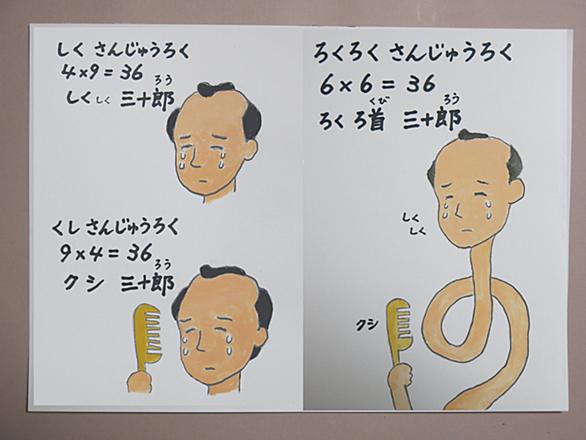 しく さんじゅうろく
4×9=36
ろう
しくしく 三十郎
くし さんじゅうろく
9×4=36
ろう
クシ 三十郎
ろくろく さんじゅうろく
6×6=36
くび ろう
ろくろ首 三十郎
しく
しく
クシ